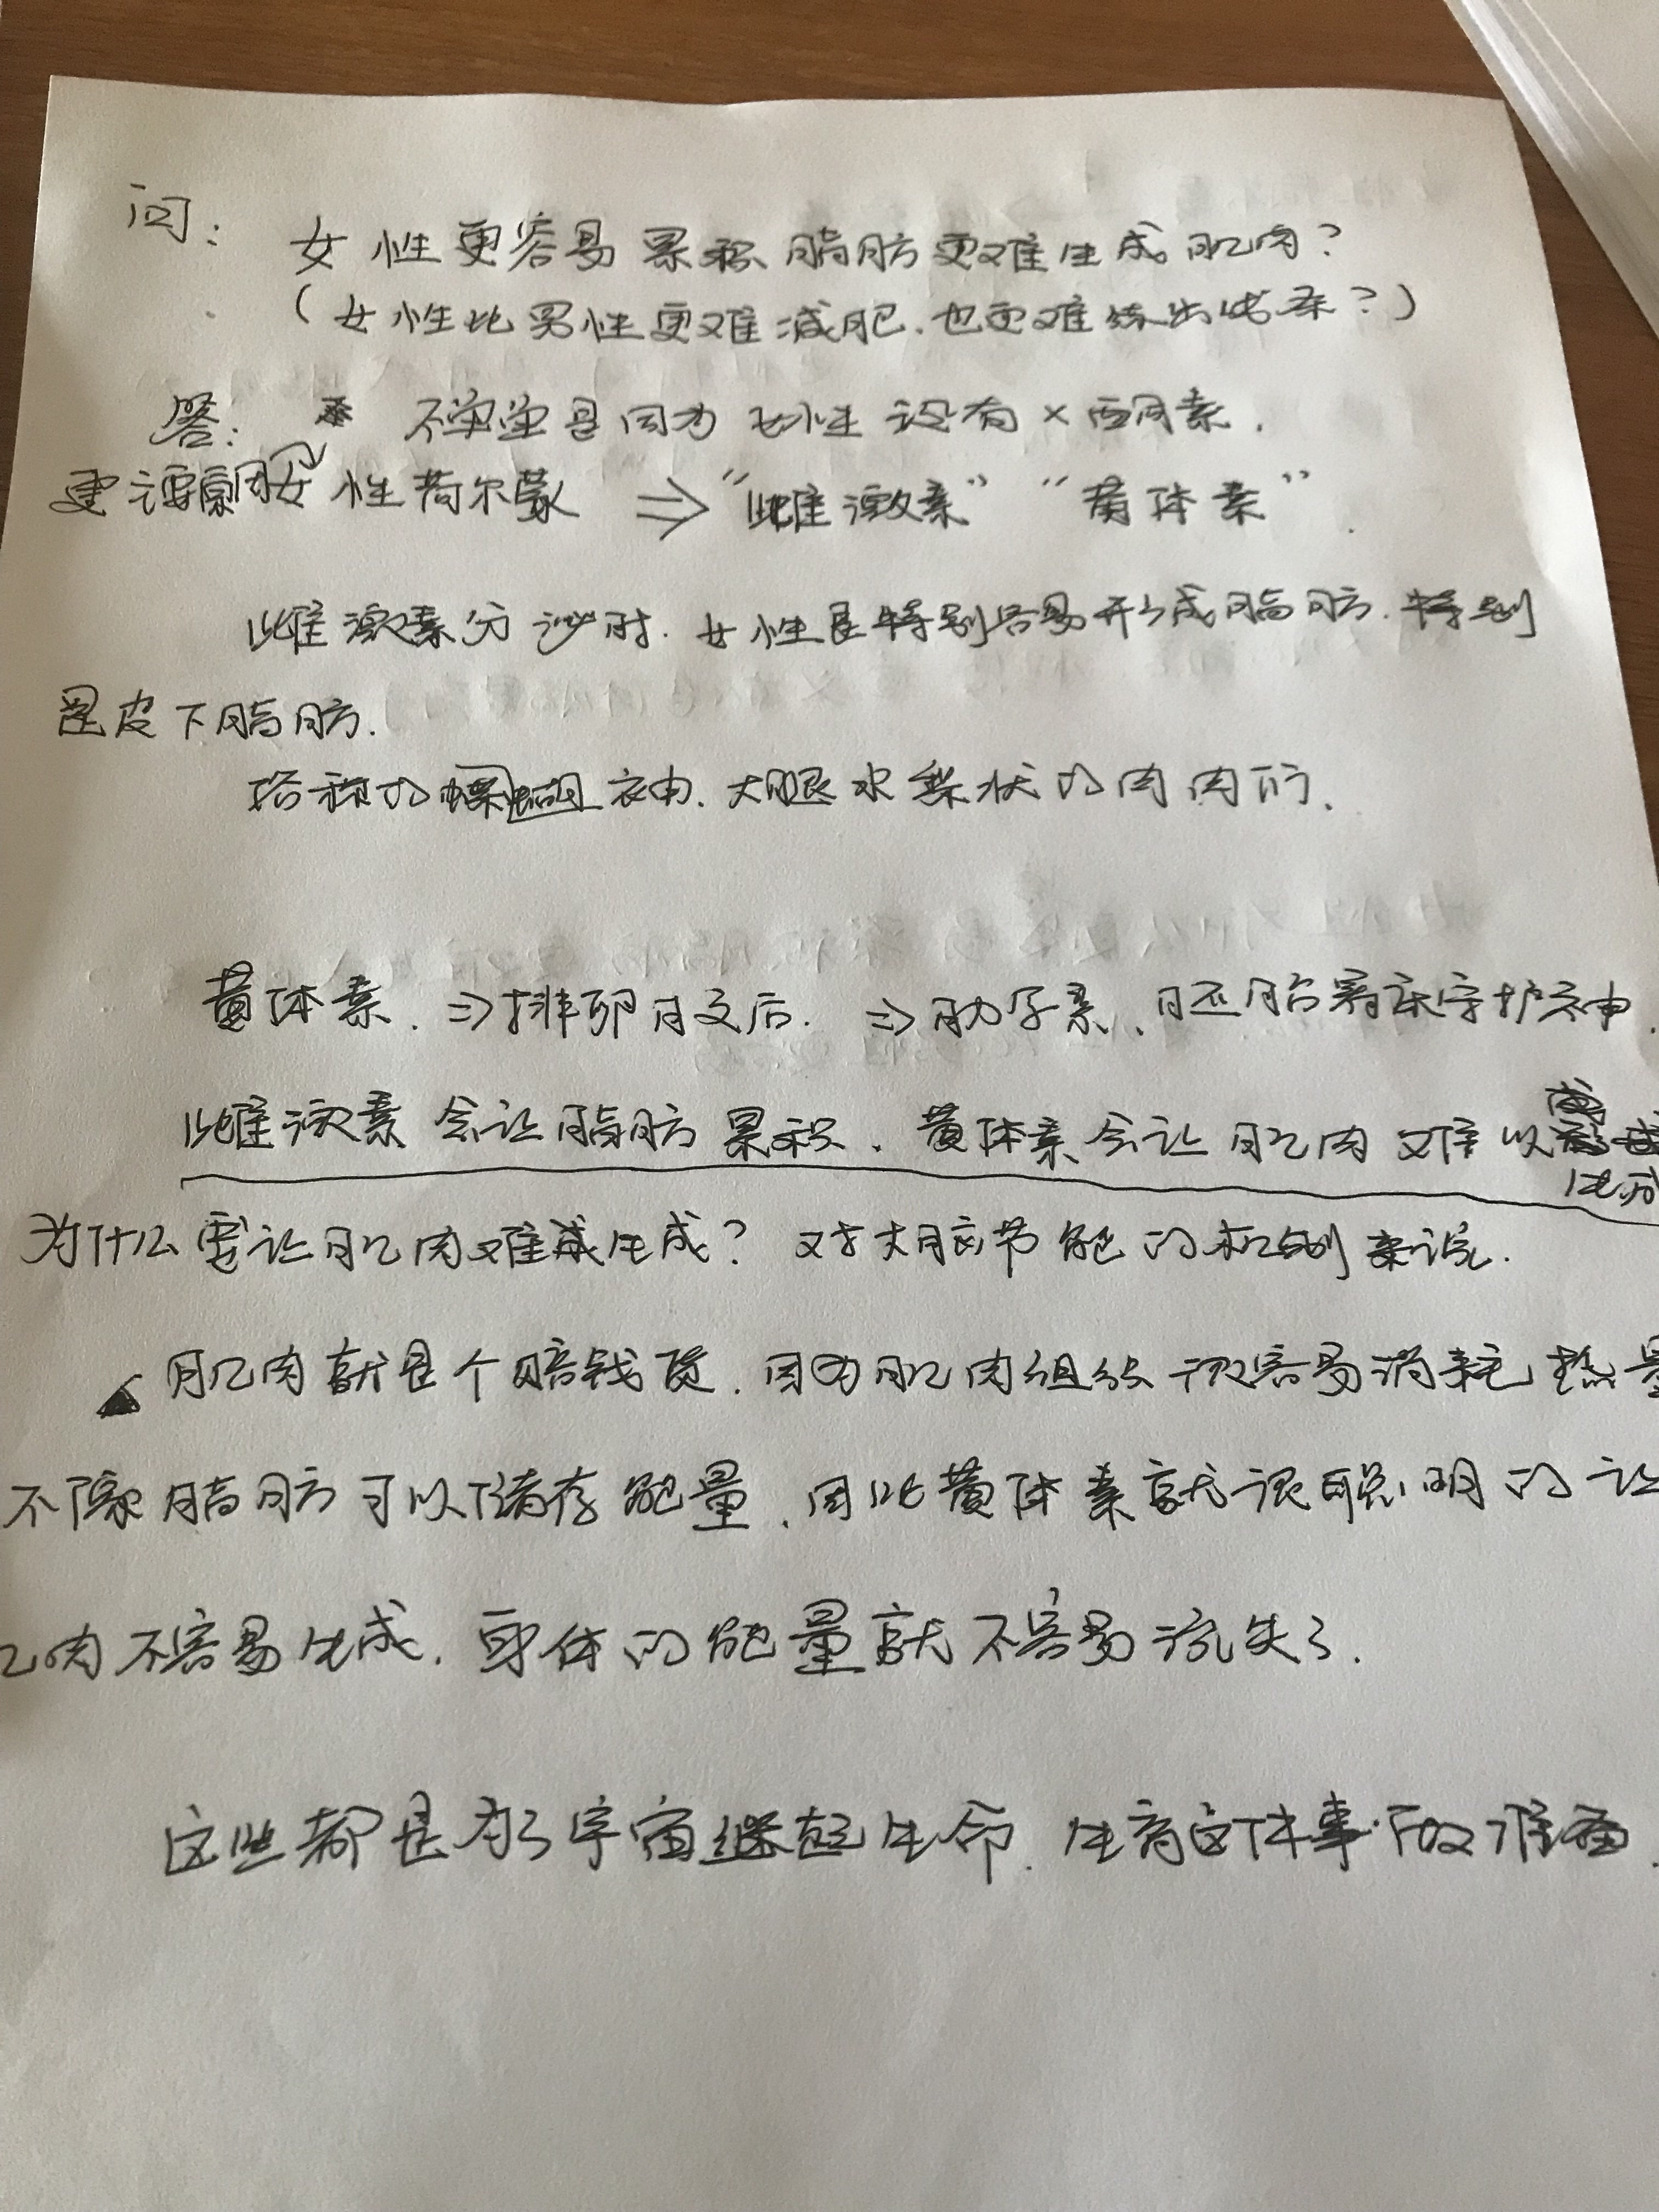 问: 女性更容易累积脂肪更难生成肌肉?
(女性比男性更难减肥.也更难练出线条?)
答: 不单单是因为女性没有×西同素.
更主要原因女性荷尔蒙 ⇒ "雌激素" "黄体素".
雌激素分泌时.女性是特别容易形成脂肪.特别
是皮下脂肪.
俗称的蝴蝶袖.大腿水梨状的肉肉们.
黄体素.⇒排卵日之后. ⇒助孕素、胚胎着床守护神.
雌激素会让脂肪累积.黄体素会让肌肉难以
生成
为什么要让肌肉难生成? 对大脑节能的机制来说.
肌肉就是个赔钱货.因为肌肉组织很容易消耗热量
不像脂肪可以储存能量.因此黄体素就很聪明的让
肉不容易生成.身体的能量就不容易流失了.
这些都是为了宇宙继起生命.生育这件事做准备.